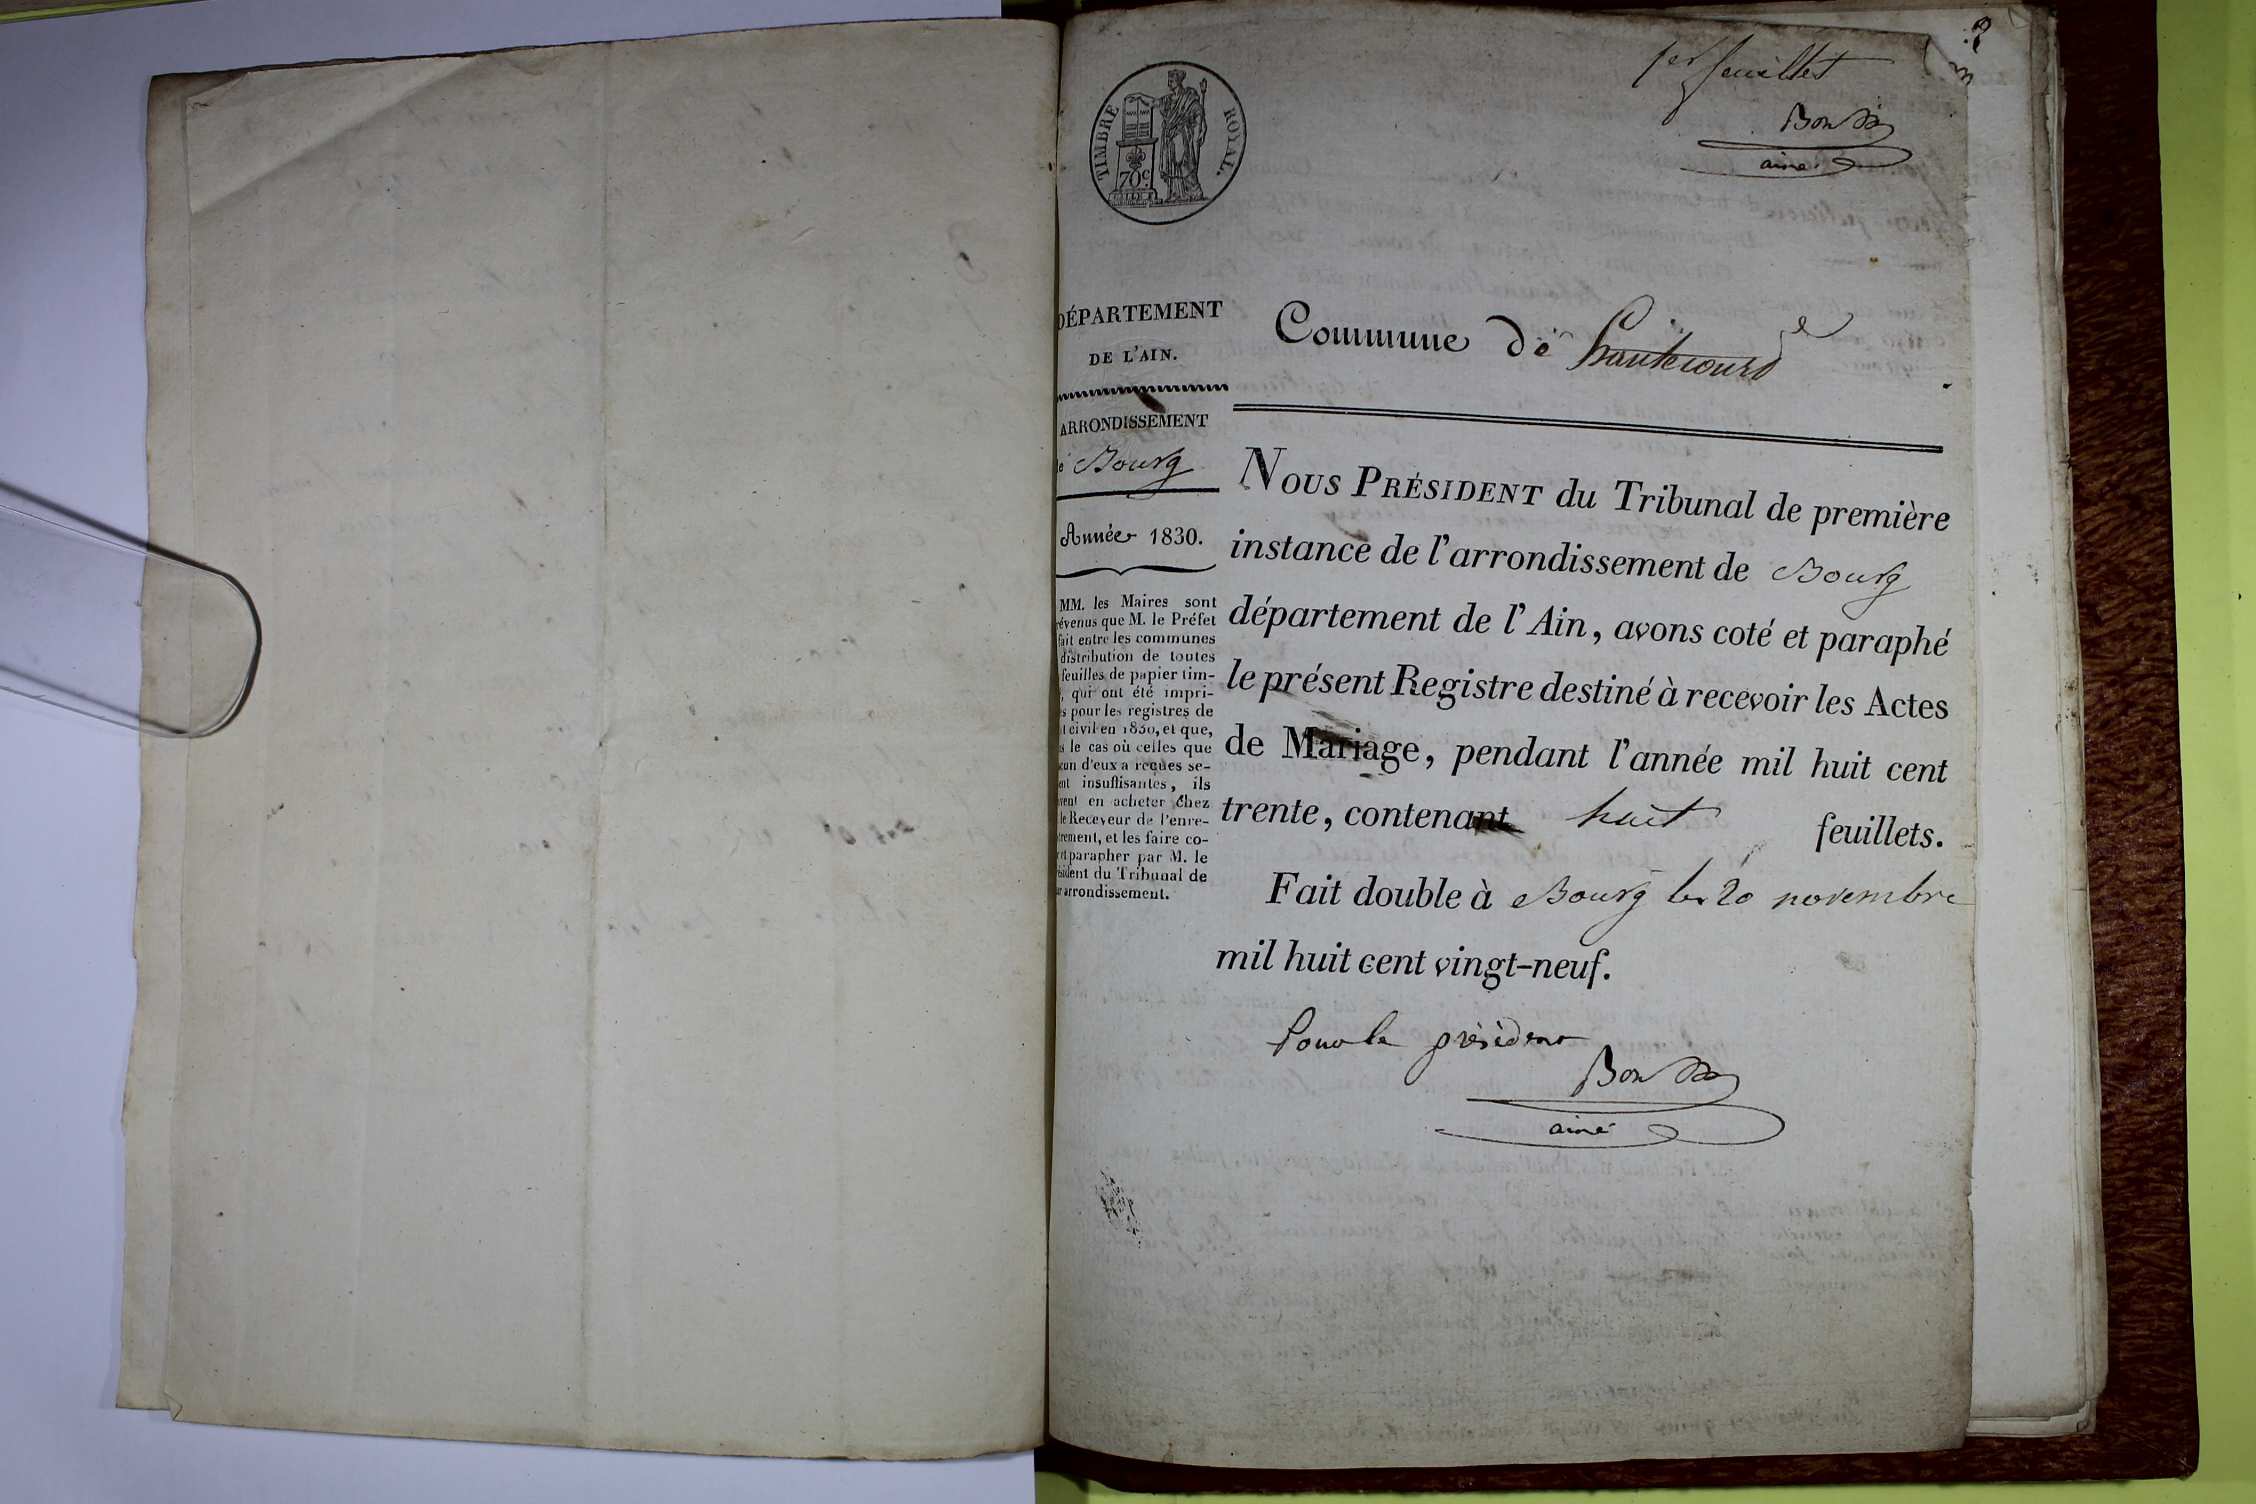 1er feuillet
aîné
TIMBRE ROYAL.
70c
DÉPARTEMENT
DE L'AIN.
Commune de hautecourt
ARRONDISSEMENT
de Bourg
Année 1830.
MM. les Maires sont
révenus que M. le Préfet
fait entre les communes
distribution de toutes
feuilles de papier tim-
, qui ont été impri-
s pour les registres de
t civil en 1830, et que,
s le cas où celles que
cun d'eux a reçues se-
ent insuffisantes, ils
vent en acheter chez
le Receveur de l'enre-
trement, et les faire co-
r et parapher par M. le
ésident du Tribunal de
ur arrondissement.
NOUS PRÉSIDENT du Tribunal de première
instance de l'arrondissement de Bourg
département de l'Ain, avons coté et paraphé
le présent Registre destiné à recevoir les Actes
de Mariage, pendant l'année mil huit cent
trente, contenant huit feuillets.
Fait double à Bourg le 20 novembre
mil huit cent vingt-neuf.
Pour le président
aîné